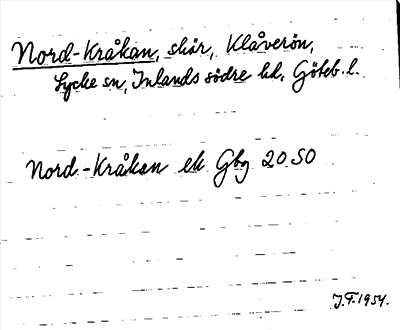 Nord-Kråkan, skär, Klåverön,
Lycke sn, Inlands södre hd, Göteb. l.
Nord-Kråkan ek Gbg 20 SO
J.F. 1954.